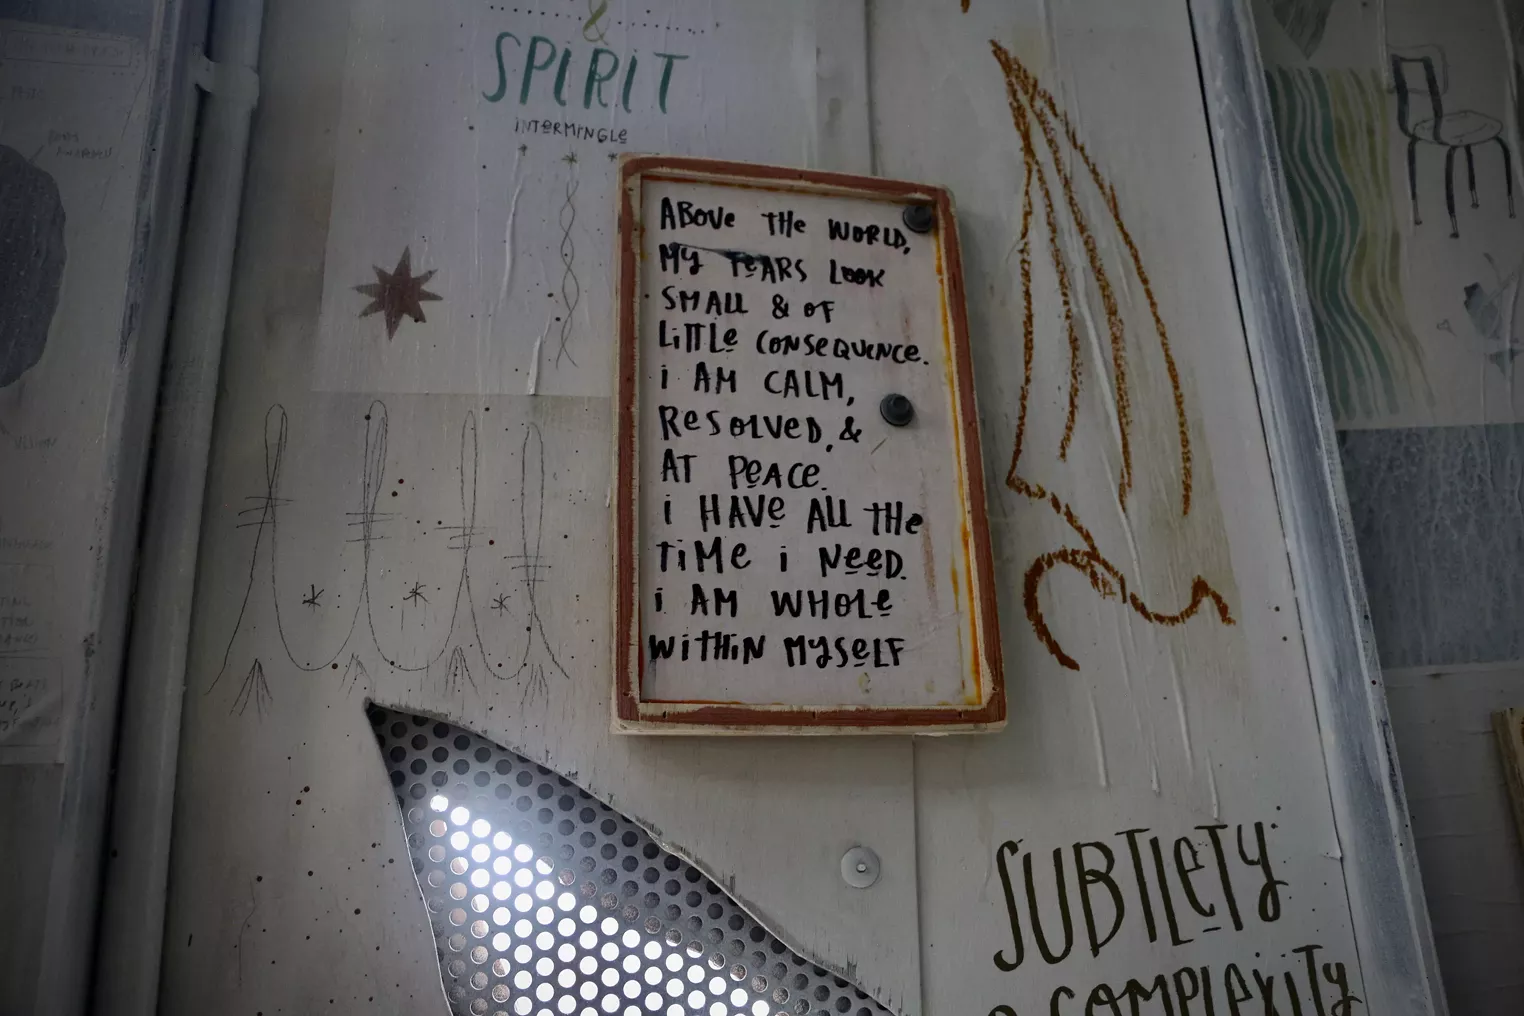 &
SPIRIT
INTERMINGLE
ABOVE THE WORLD,
MY TEARS LOOK
SMALL & OF
LITTLE CONSEQUENCE.
I AM CALM,
RESOLVED, &
AT PEACE.
I HAVE ALL THE
TIME I NEED.
I AM WHOLE
WITHIN MYSELF
SUBTLETY
& COMPLEXITY